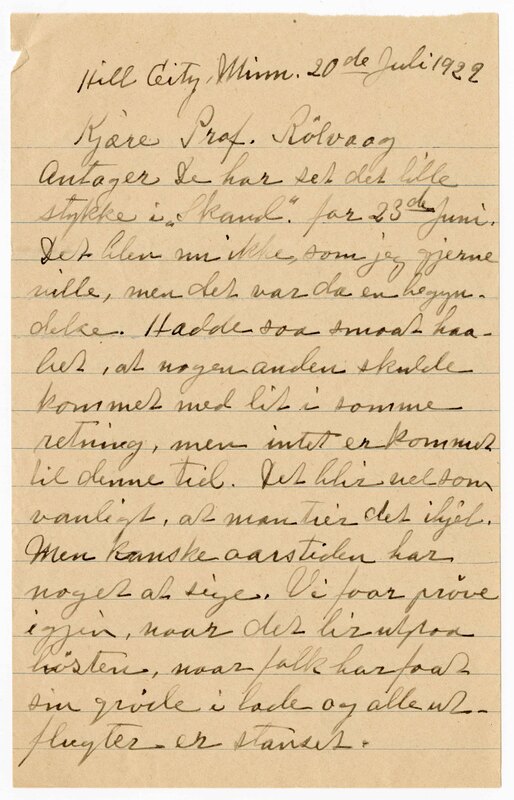 Hill City, Minn. 20de Juli 1922
Kjære Prof. Rölvaag
Antager De har set det lille
stykke i „Skand". for 23de Juni.
Det blev nu ikke, som jeg gjerne
ville, men det var da en begyn-
delse. Hadde saa smaat haa-
bet, at nogen anden skulde
kommet med lit i somme
retning, men intet er kommet
til denne tid. Det blir vel som
vanligt, at man tier det ihjel.
Men kanske aarstiden har
noget at sige. Vi faar pröve
igjen, naar det lir utpaa
hösten, naar folk har faat
sin gröde i lade og alle ut-
flugter er stanset.